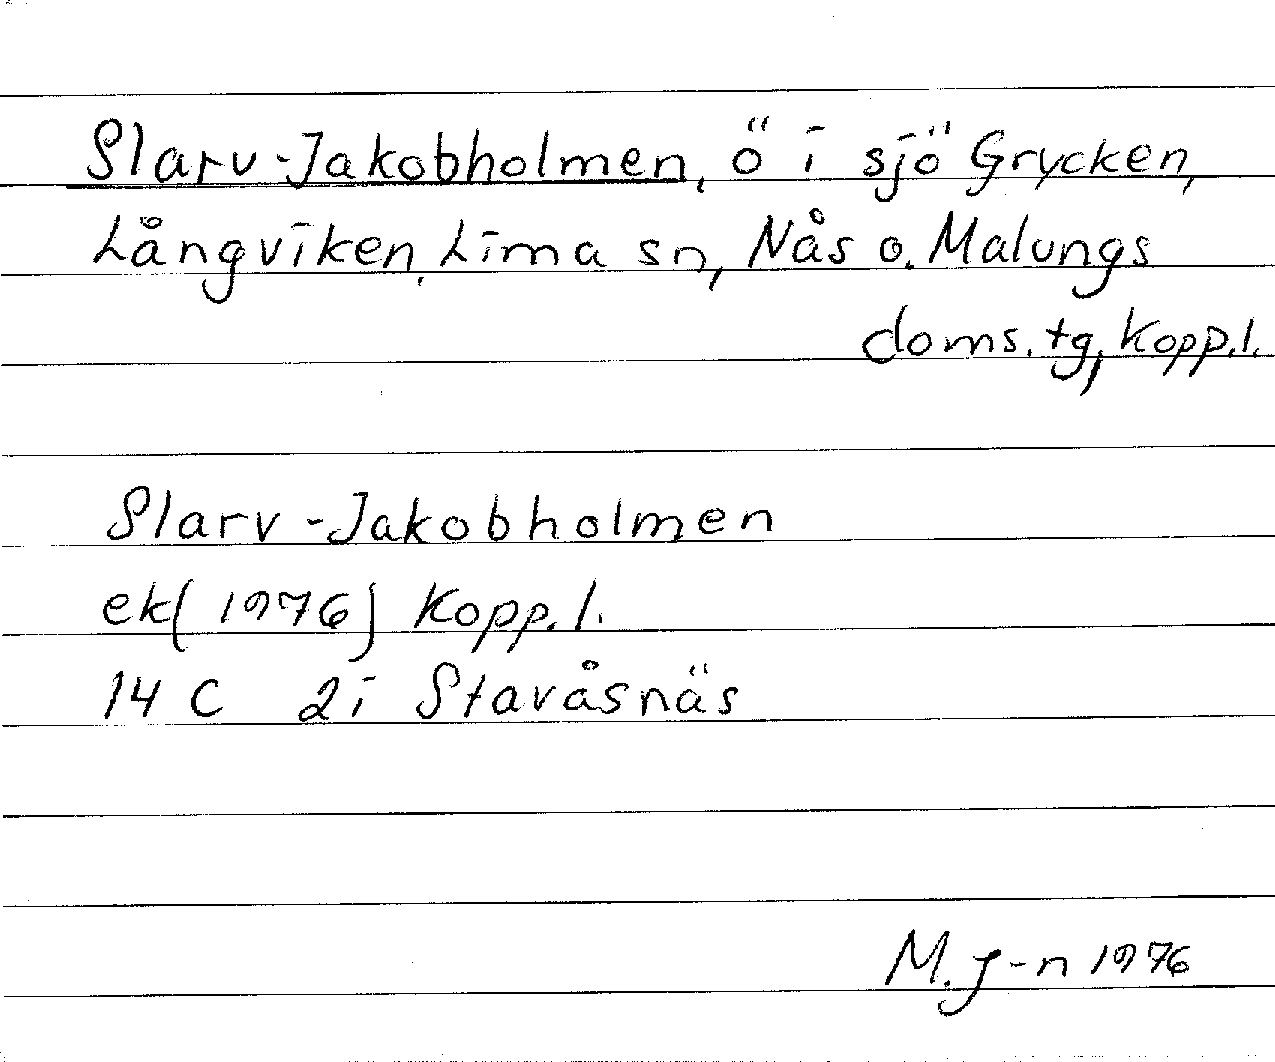 Slarv-Jakobholmen, ö i sjö Grycken,
Långviken, Lima sn, Nås o. Malungs
doms. tg, Kopp. l.
Slarv-Jakobholmen
ek (1976) Kopp. l.
14 C 2i Stavåsnäs
M. J-n 1976